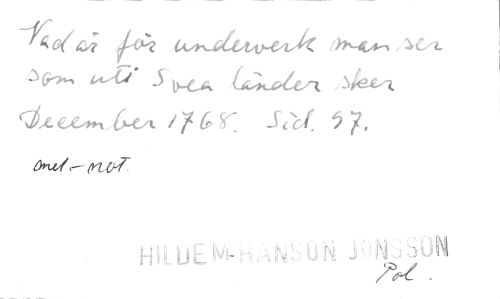 Vad är för underverk man ser
som uti Svea länder sker
December 1768. Sid. 97.
mel-not.
HILDEM-HANSON JONSSON
Pol.